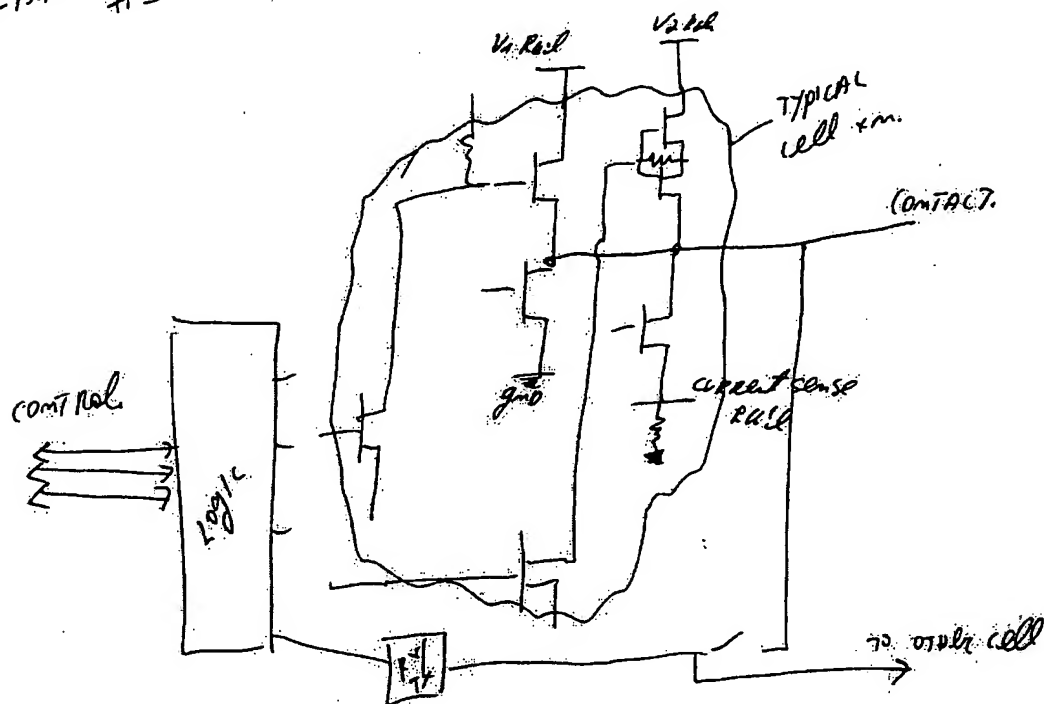 V1 Rail
V2 Rail
TYPICAL
cell x m.
CONTACT.
gnd
current sense
RAIL
CONTROL
LOGIC
TO OTHER cell